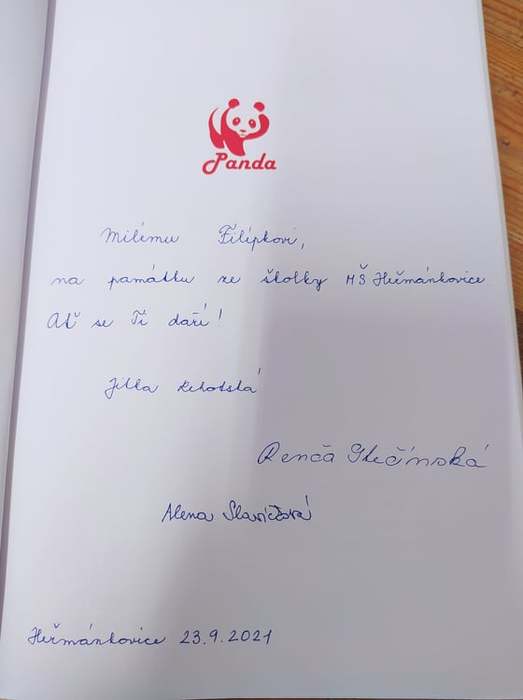 Panda
Milému Filípkovi,
na památku ze školky MŠ Heřmánkovice
Ať se Ti daří!
Jitka
Renča
Alena Slavíčková
Heřmánkovice 23.9.2021